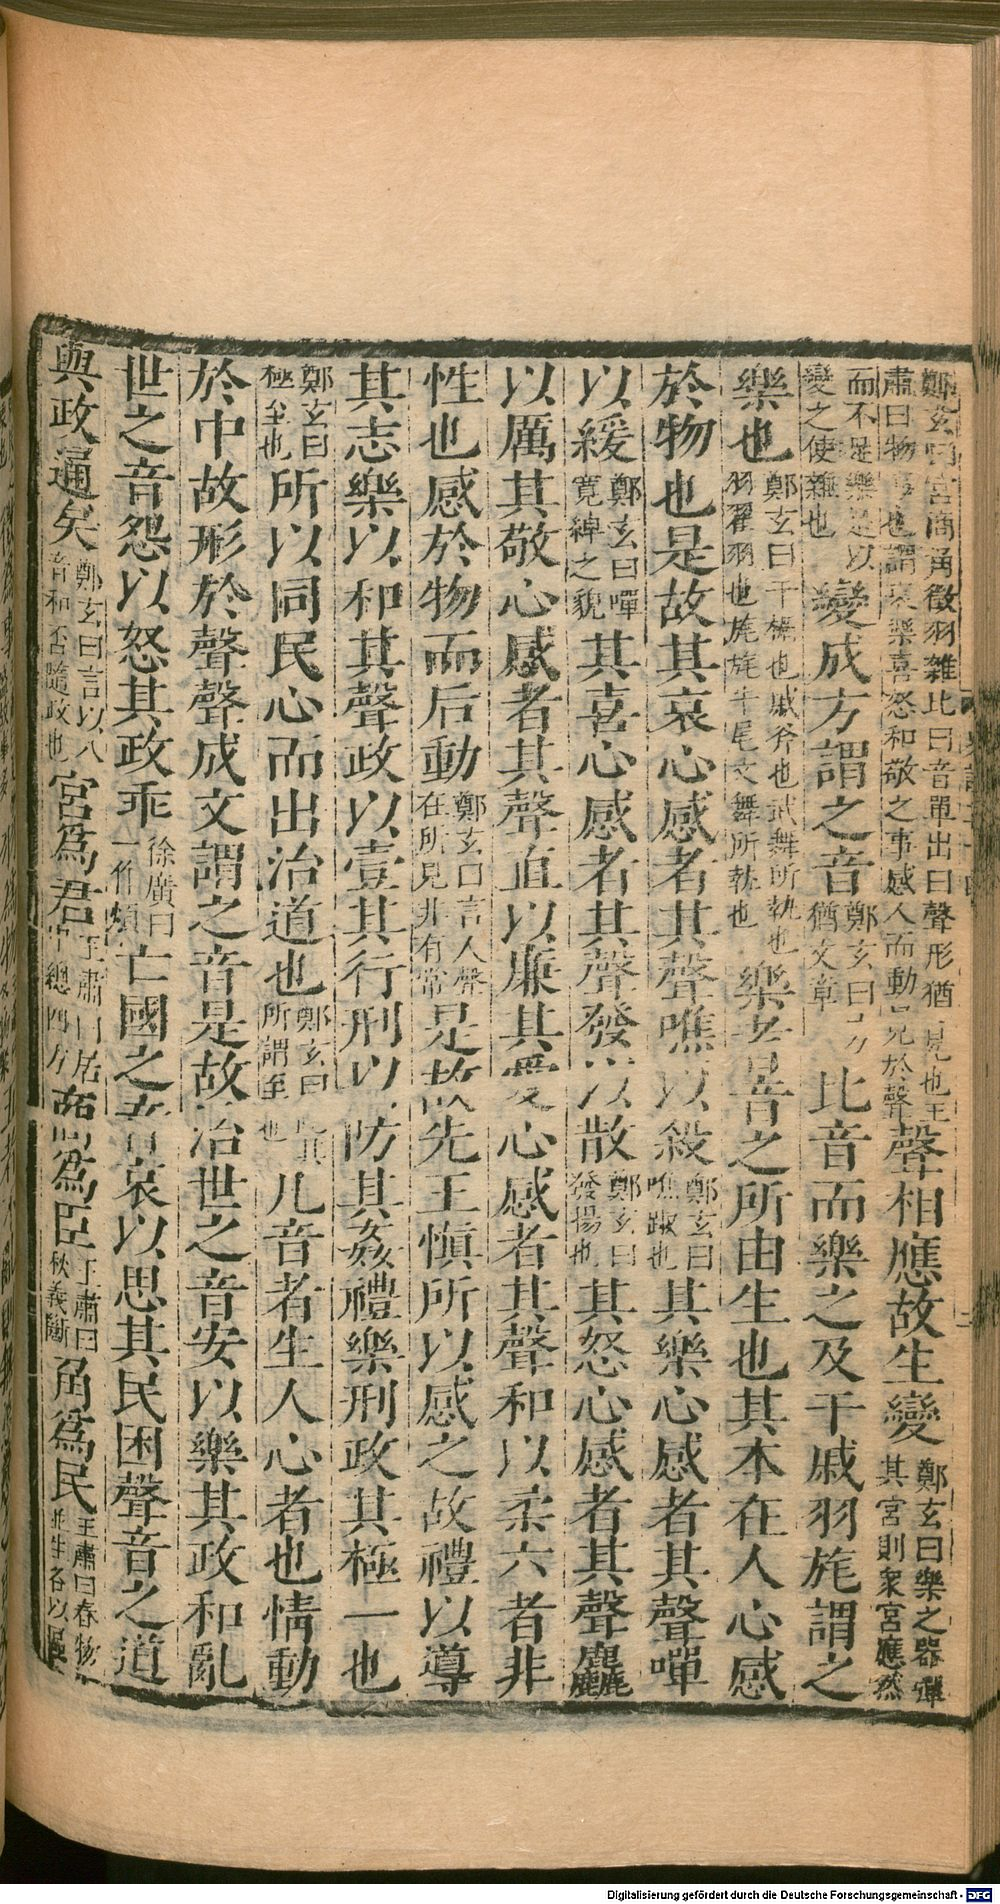 鄭玄曰宮商角徵羽雜比曰音單出曰聲形猶見也王肅曰物事也謂哀樂喜怒和敬之事感人而動見於聲聲相應故生變鄭玄曰樂之器彈其宮則衆宮應然
而不足樂是以變之使雜也變成方謂之音鄭玄曰方猶文章比音而樂之及干戚羽旄謂之
樂也鄭玄曰干楯也戚斧也武舞所執也羽翟羽也旄旄牛尾文舞所執也樂者音之所由生也其本在人心感
於物也是故其哀心感者其聲噍以殺鄭玄曰噍踧也其樂心感者其聲嘽
以緩鄭玄曰嘽寬綽之貌其喜心感者其聲發以散鄭玄曰發揚也其怒心感者其聲麤
以厲其敬心感者其聲直以廉其愛心感者其聲和以柔六者非
性也感於物而后動鄭玄曰言人聲在所見非有常是故先王慎所以感之故禮以導
其志樂以和其聲政以壹其行刑以防其姦禮樂刑政其極一也
鄭玄曰極至也所以同民心而出治道也鄭玄曰此其所謂至也凡音者生人心者也情動
於中故形於聲聲成文謂之音是故治世之音安以樂其政和亂
世之音怨以怒其政乖徐廣曰一作煩亡國之音哀以思其民困聲音之道
與政通矣鄭玄曰言以八音和否隨政也宮爲君王肅曰居中總四方商爲臣王肅曰秋義斷角爲民王肅曰春物並生各以區
Digitalisierung gefördert durch die Deutsche Forschungsgemeinschaft - DFG